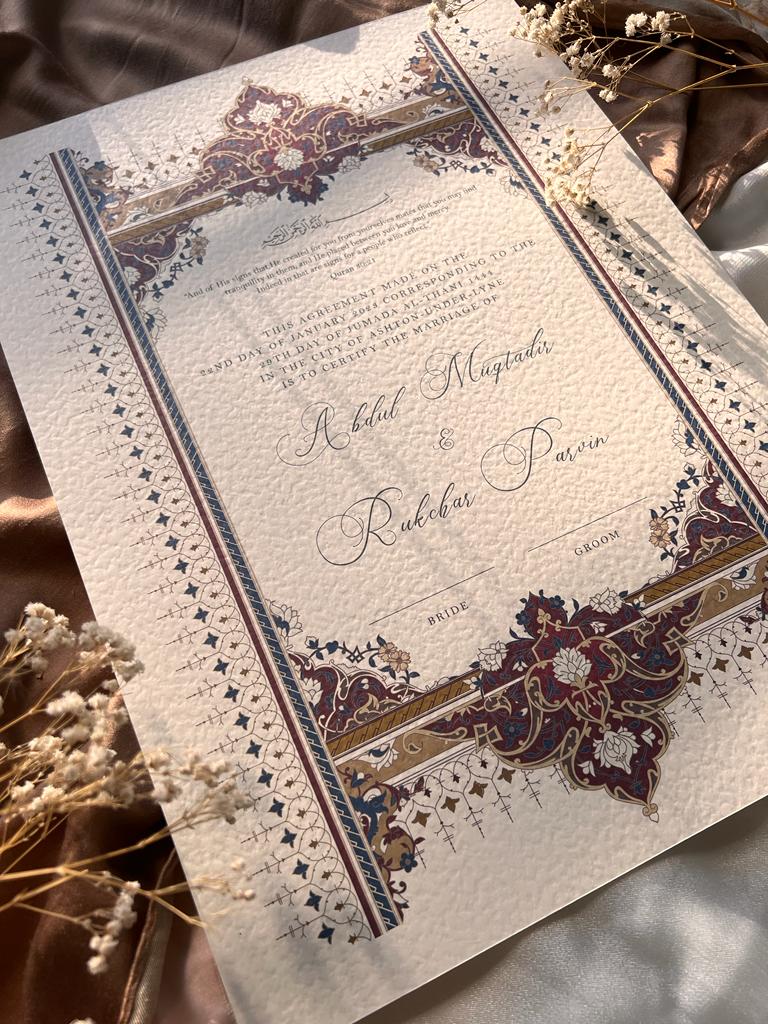 بسم الله الرحمن الرحيم
"And of His signs that He created for you from yourselves mates that you may find
tranquility in them, and He placed between you love and mercy
Indeed in that are signs for a people who reflect."
Quran 30:21
THIS AGREEMENT MADE ON THE
22ND DAY OF JANUARY 2023 CORRESPONDING TO THE
29TH DAY OF JUMADA AL-THANI 1444
IN THE CITY OF ASHTON-UNDER-LYNE
IS TO CERTIFY THE MARRIAGE OF
Abdul Muqtadir
&
Rukchar Parvin
BRIDE GROOM